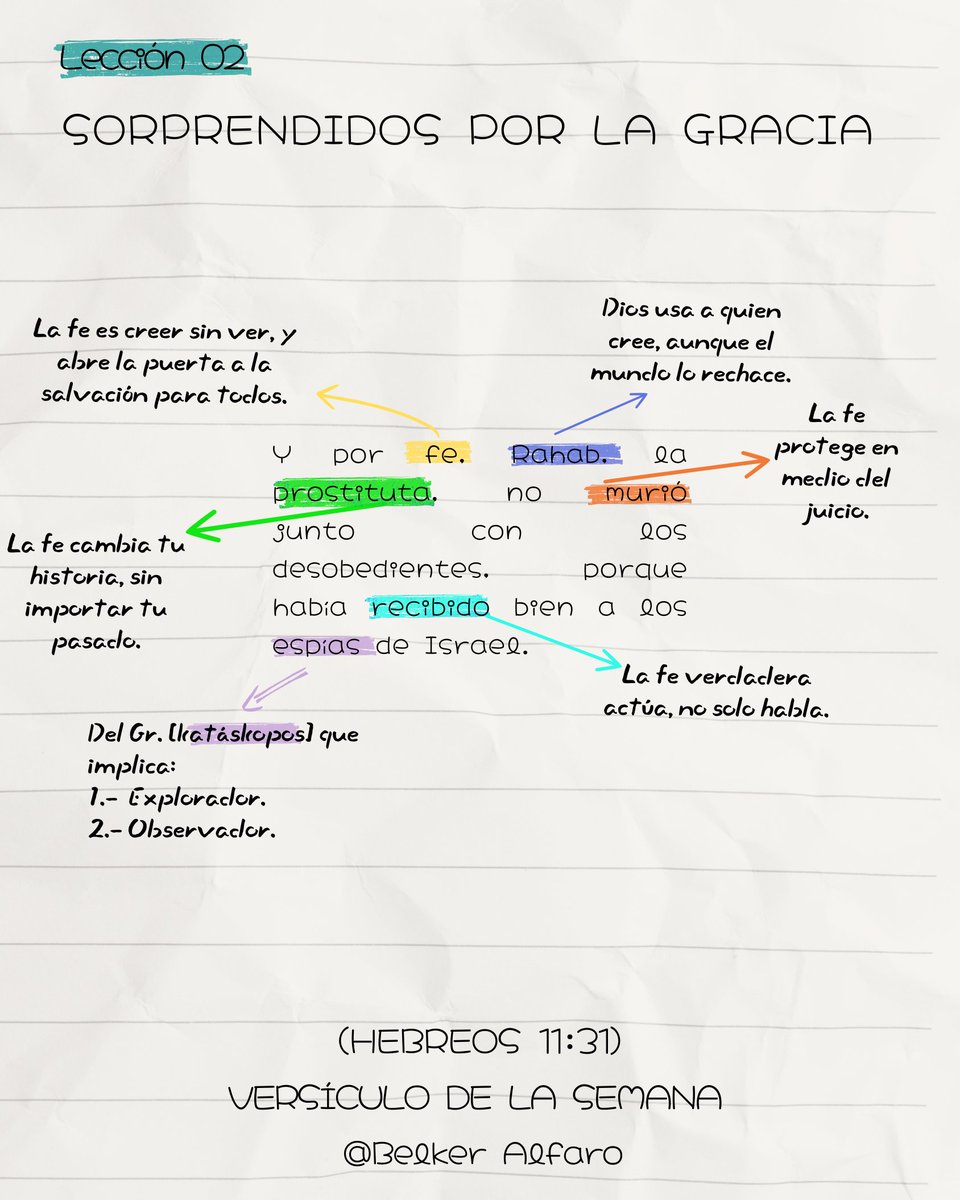 Lección 02
SORPRENDIDOS POR LA GRACIA
La fe es creer sin ver, y
abre la puerta a la
salvación para todos.
Dios usa a quien
cree, aunque el
mundo lo rechace.
La fe
protege en
medio del
juicio.
Y por fe. Rahab. la
prostituta. no murió
junto con los
desobedientes. porque
había recibido bien a los
espías de Israel.
La fe cambia tu
historia, sin
importar tu
pasado.
La fe verdadera
actúa, no solo habla.
Del Gr. [katáskopos] que
implica:
1.- Explorador.
2.- Observador.
(HEBREOS 11:31)
VERSÍCULO DE LA SEMANA
@Belker Alfaro